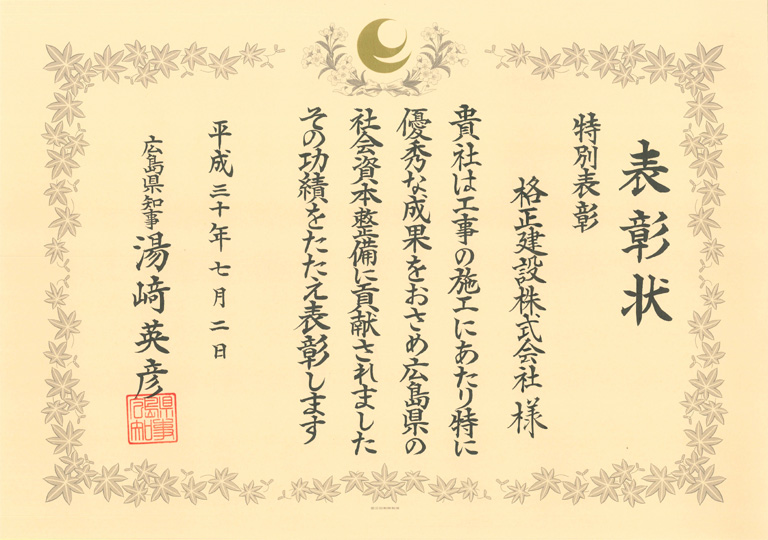 表彰状
特別表彰
格正建設株式会社 様
貴社は工事の施工にあたり特に
優秀な成果をおさめ広島県の
社会資本整備に貢献されました
その功績をたたえ表彰します
平成三十年七月二日
広島県知事 湯﨑英彦
広島県知事